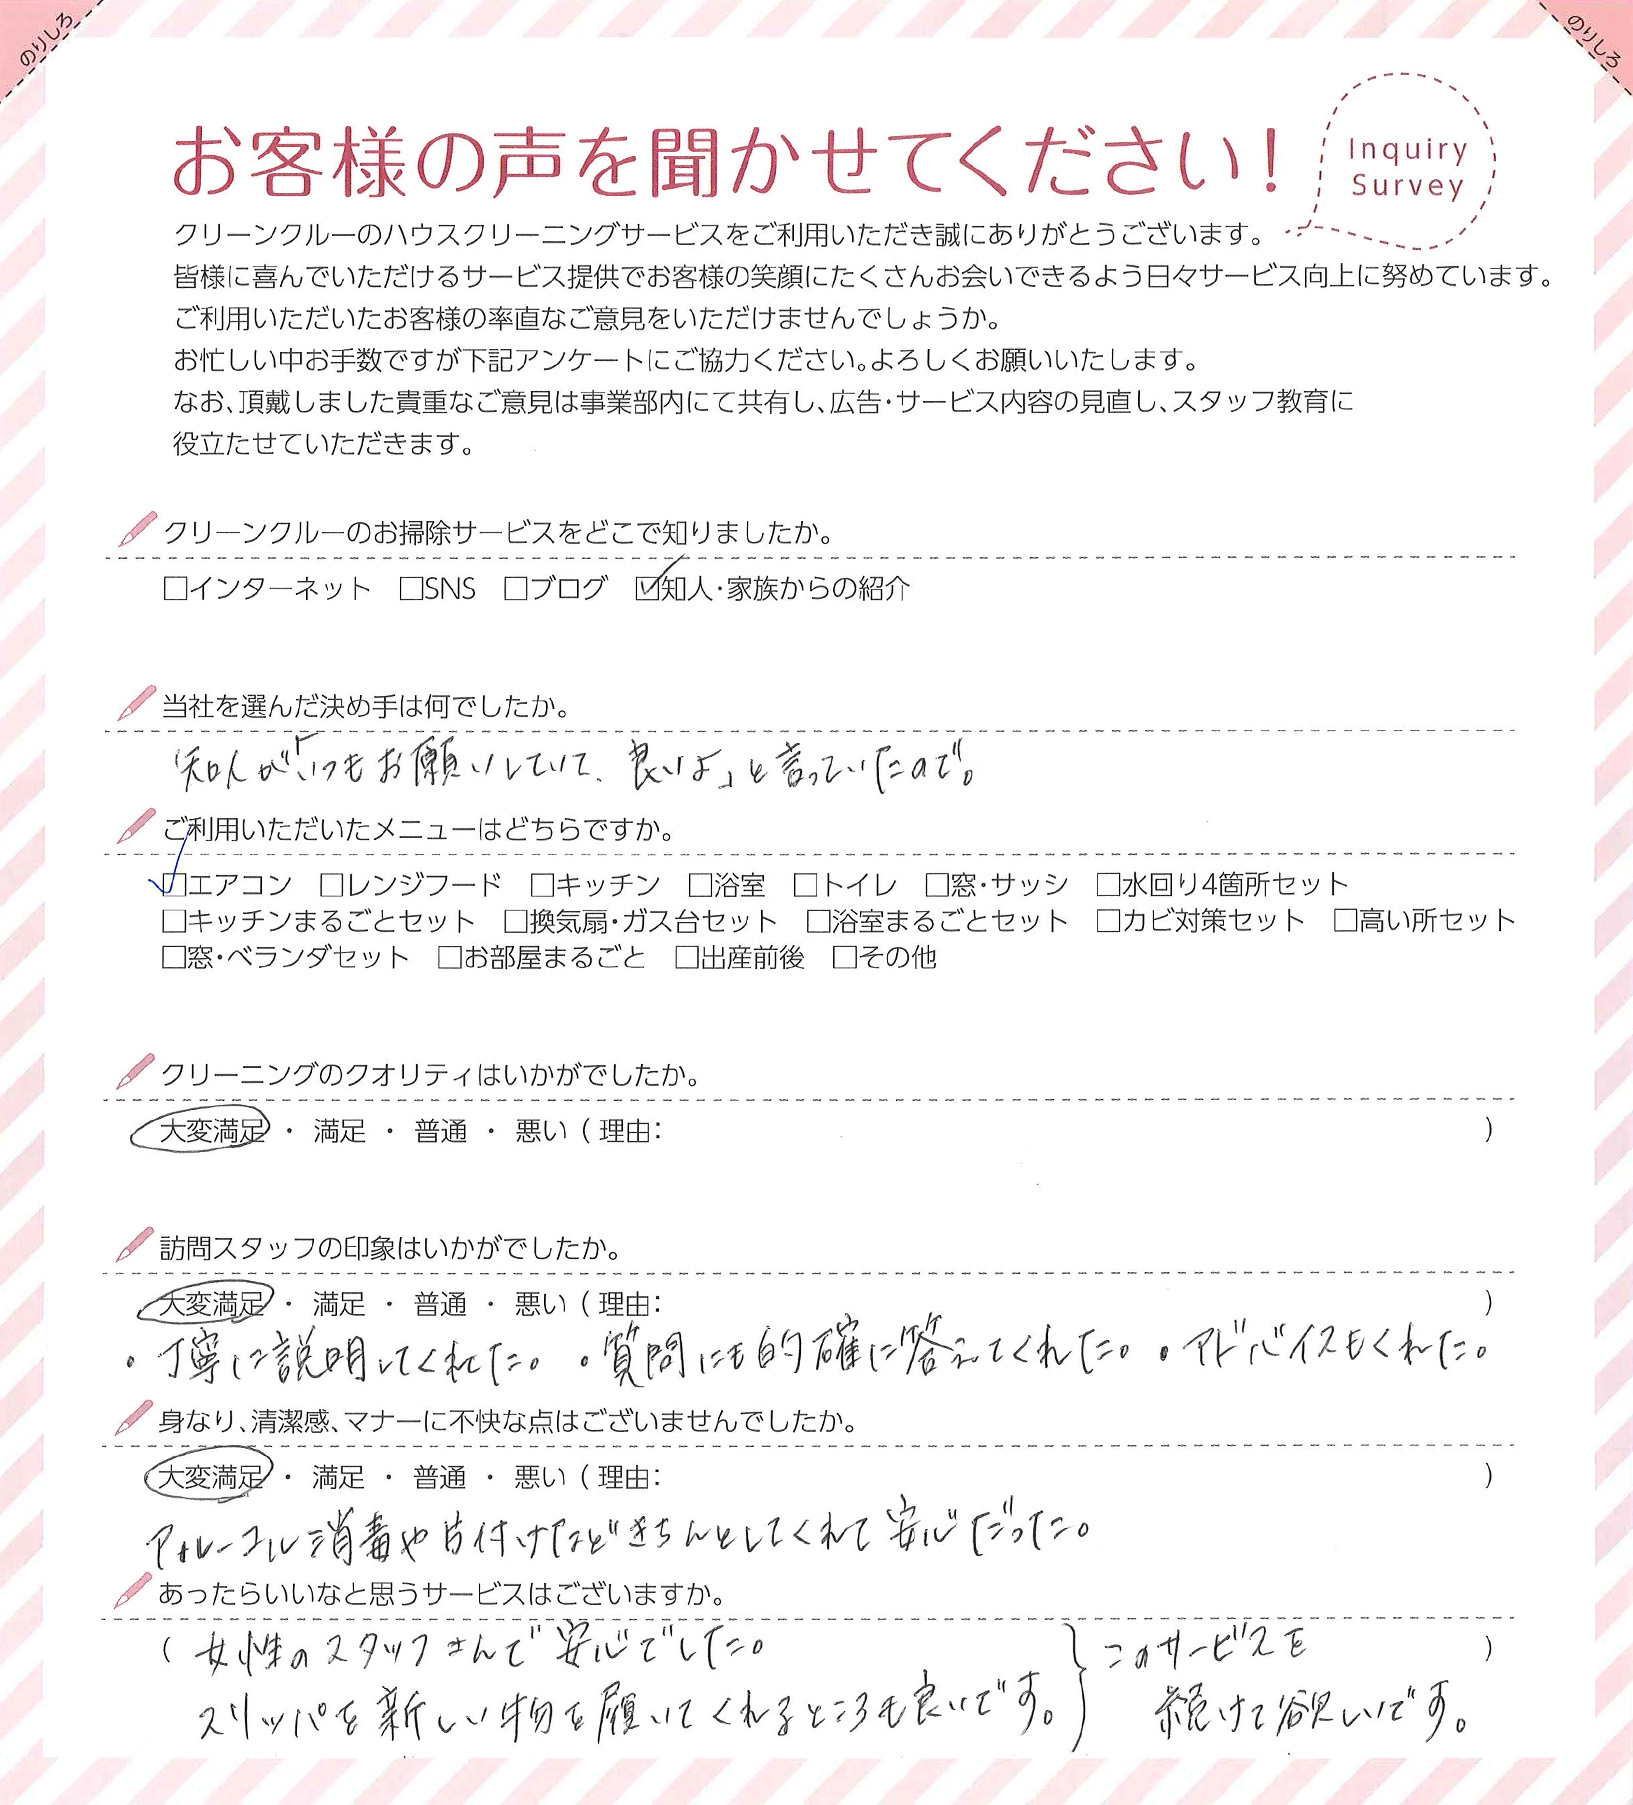 のりしろ
のりしろ
お客様の声を聞かせてください！
Inquiry
Survey
クリーンクルーのハウスクリーニングサービスをご利用いただき誠にありがとうございます。
皆様に喜んでいただけるサービス提供でお客様の笑顔にたくさんお会いできるよう日々サービス向上に努めています。
ご利用いただいたお客様の率直なご意見をいただけませんでしょうか。
お忙しい中お手数ですが下記アンケートにご協力ください。よろしくお願いいたします。
なお、頂戴しました貴重なご意見は事業部内にて共有し、広告・サービス内容の見直し、スタッフ教育に
役立たせていただきます。
クリーンクルーのお掃除サービスをどこで知りましたか。
□インターネット □SNS □ブログ ☑知人・家族からの紹介
当社を選んだ決め手は何でしたか。
知人が「いつもお願いしていて、良いよ」と言っていたので。
ご利用いただいたメニューはどちらですか。
☑エアコン □レンジフード □キッチン □浴室 □トイレ □窓・サッシ □水回り4箇所セット
□キッチンまるごとセット □換気扇・ガス台セット □浴室まるごとセット □カビ対策セット □高い所セット
□窓・ベランダセット □お部屋まるごと □出産前後 □その他
クリーニングのクオリティはいかがでしたか。
大変満足 ・ 満足 ・ 普通 ・ 悪い（理由：　）
訪問スタッフの印象はいかがでしたか。
大変満足 ・ 満足 ・ 普通 ・ 悪い（理由：　）
・丁寧に説明してくれた。・質問にも的確に答えてくれた。・アドバイスもくれた。
身なり、清潔感、マナーに不快な点はございませんでしたか。
大変満足 ・ 満足 ・ 普通 ・ 悪い（理由：　）
アルコール消毒や片付けなどきちんとしてくれて安心だった。
あったらいいなと思うサービスはございますか。
（女性のスタッフさんで安心でした。
スリッパを新しい物を履いてくれるところも良いです。
このサービスを ）
続けて欲しいです。